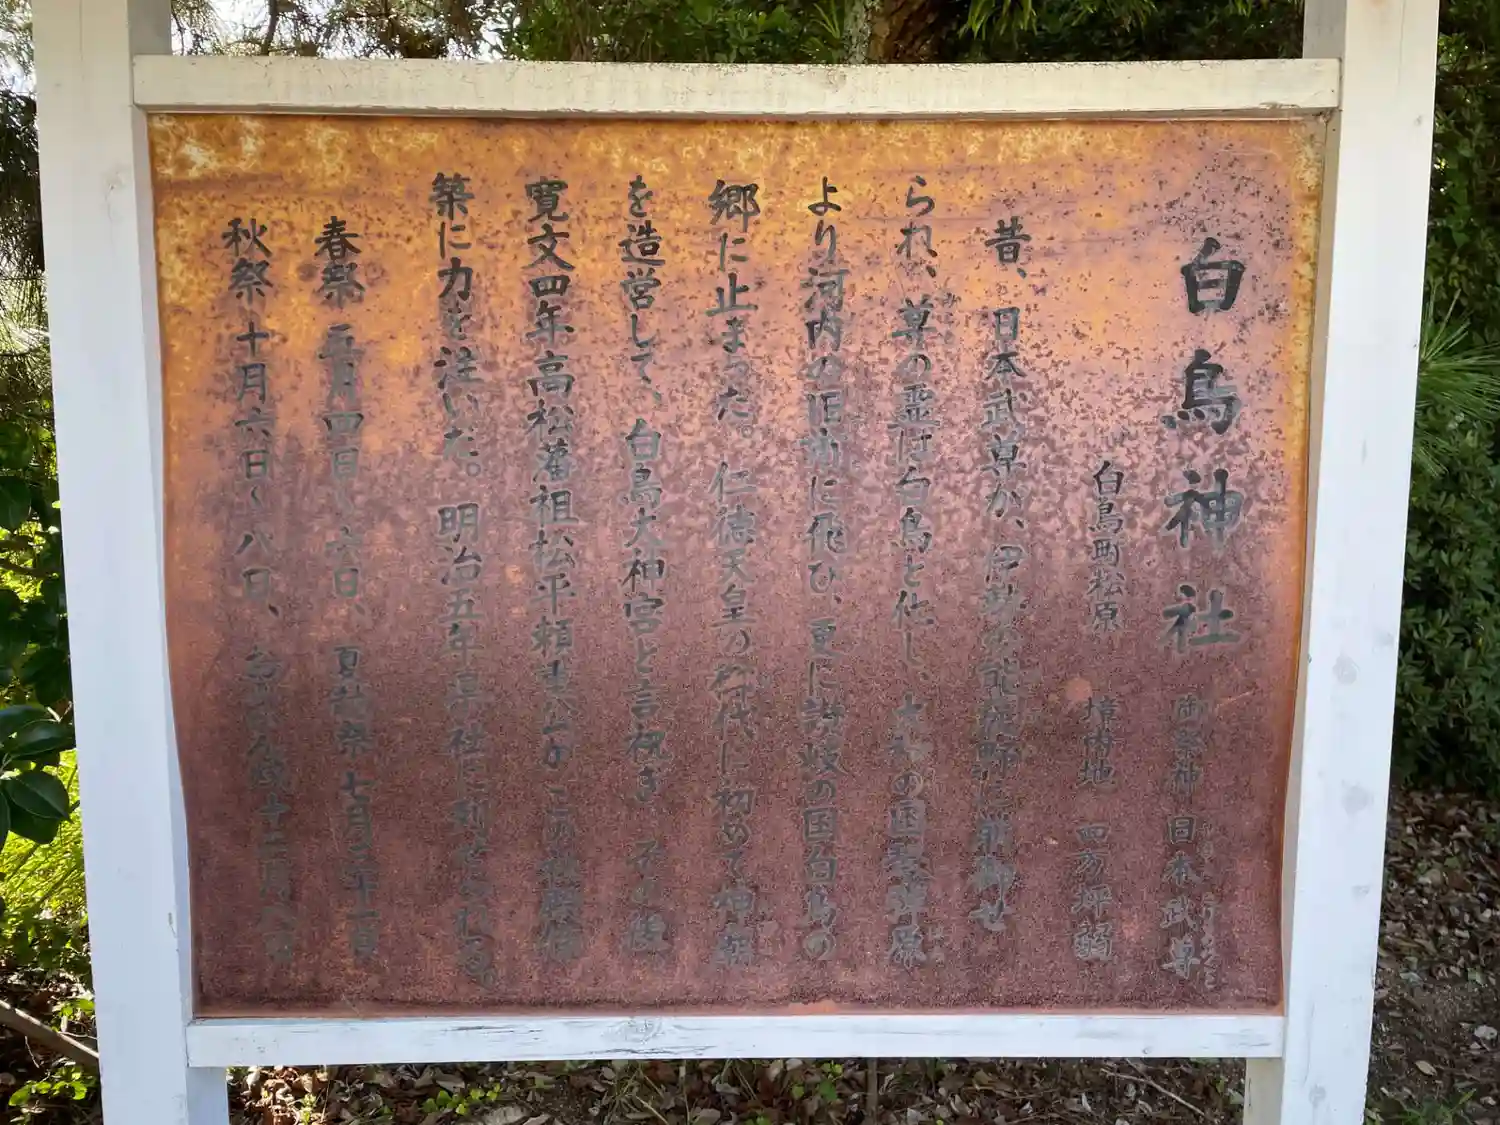 白鳥神社 御祭神 日本武尊
白鳥町松原 境内地 四万坪
昔、日本武尊が、伊勢の能褒野に
られ、尊の霊は白鳥と化し、大和の国琴弾原
より河内の旧市に飛び、更に讃岐の国白鳥の
郷に止まった。仁徳天皇の御代に初めて神廟
を造営して、白鳥大神宮と言祝ぎ その後
寛文四年高松藩祖松平頼重公が この社殿修
築に力を注いだ。明治五年県社に列せられる。
春祭 五月四日~六日、 夏越祭 七月三十一日
秋祭 十月六日~八日、 十二月